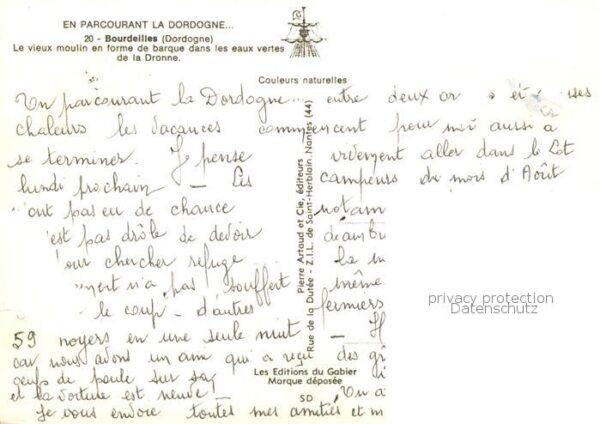 EN PARCOURANT LA DORDOGNE...
20 - Bourdeilles (Dordogne)
Le vieux moulin en forme de barque dans les eaux vertes
de la Dronne.
Couleurs naturelles
En parcourant la Dordogne... entre deux or et ses
chaleurs les vacances commencent pour moi aussi a
se terminer. Je pense aller dans le Lot
lundi prochain - Les campeurs du mors d'Août
ont pas eu de chance notam
est pas drôle de devoir deambu
our chercher refuge la
n'a pas souffert même
le coup - d'autres fermiers
59 noyers en une seule nuit - H
car nous avons un ami qui a reçu des gr
oeufs de poule sur sa
et la voiture est neuve - On a
Je vous envoie toutes mes amitiés et m
Pierre Artaud et Cie, éditeurs
Rue de la Dutée - Z.I.L. de Saint-Herblain. Nantes (44)
Les Editions du Gabier
Marque déposée
SD
privacy protection
Datenschutz